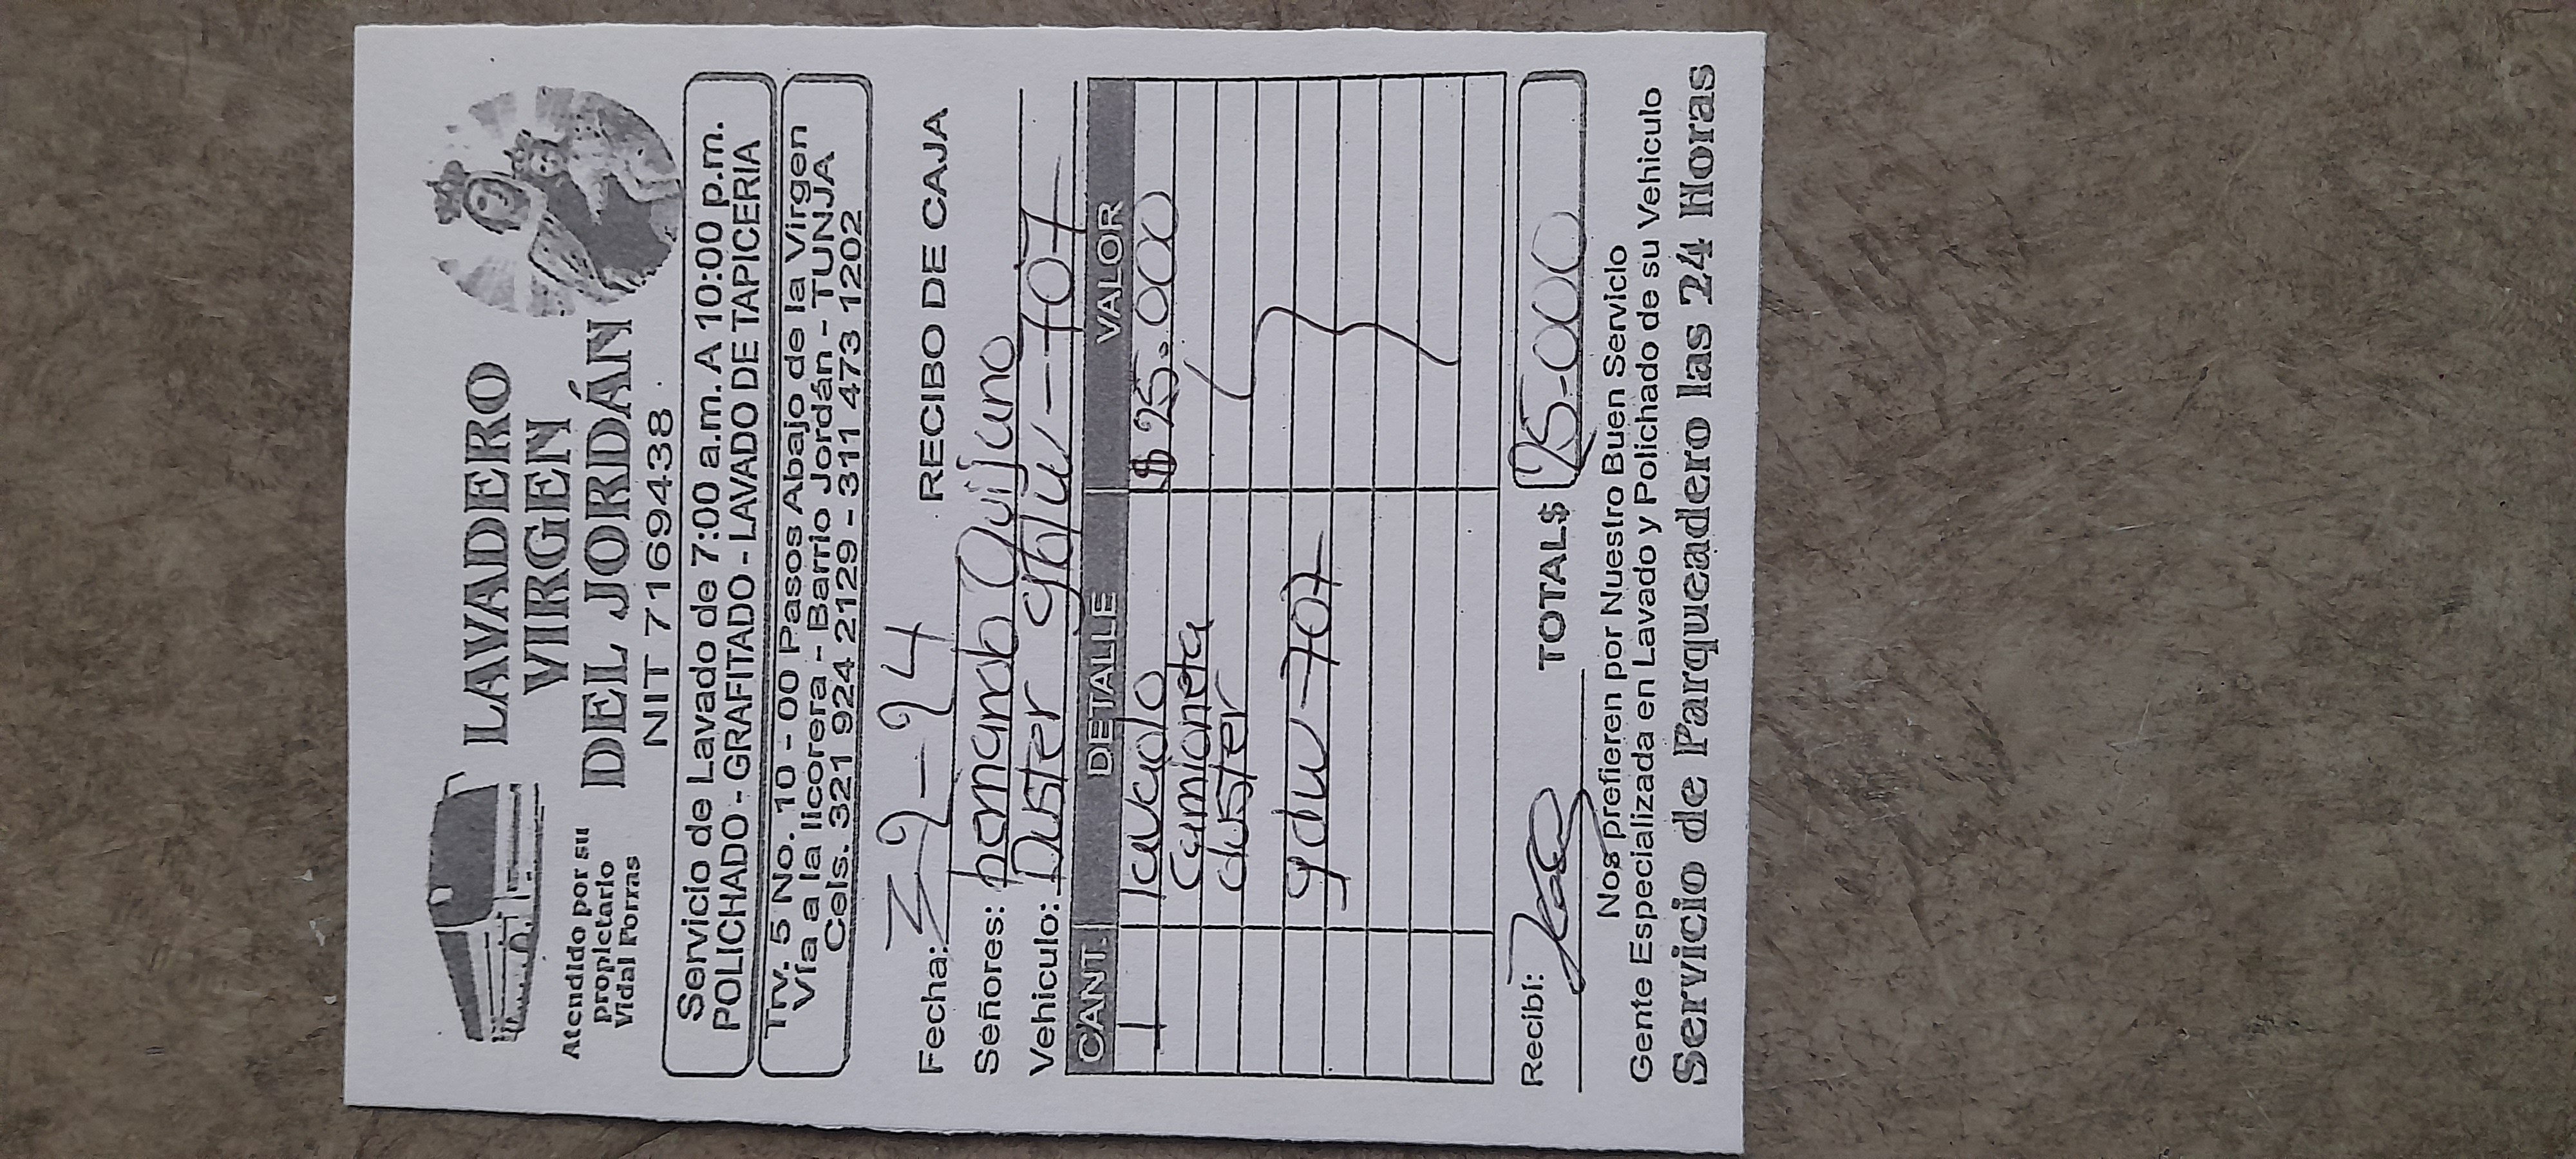 LAVADERO
VIRGEN
DEL JORDÁN
NIT 7169438.
Atendido por su
propietario
Vidal Porras
Servicio de Lavado de 7:00 a.m. A 10:00 p.m.
POLICHADO - GRAFITADO - LAVADO DE TAPICERIA
Trv. 5 No. 10 - 00 Pasos Abajo de la Virgen
Vía a la licorera - Barrio Jordán - TUNJA
Cels. 321 924 2129 - 311 473 1202
Fecha: 3-2-24 RECIBO DE CAJA
Señores: hornando Quijano
Vehiculo: Duster gdw-707
CANT. DETALLE VALOR
1 lavado $ 25.000
camioneta
duster
gdw-707
Recibí: TOTAL$ 25-000
Nos prefieren por Nuestro Buen Servicio
Gente Especializada en Lavado y Polichado de su Vehiculo
Servicio de Parqueadero las 24 Horas